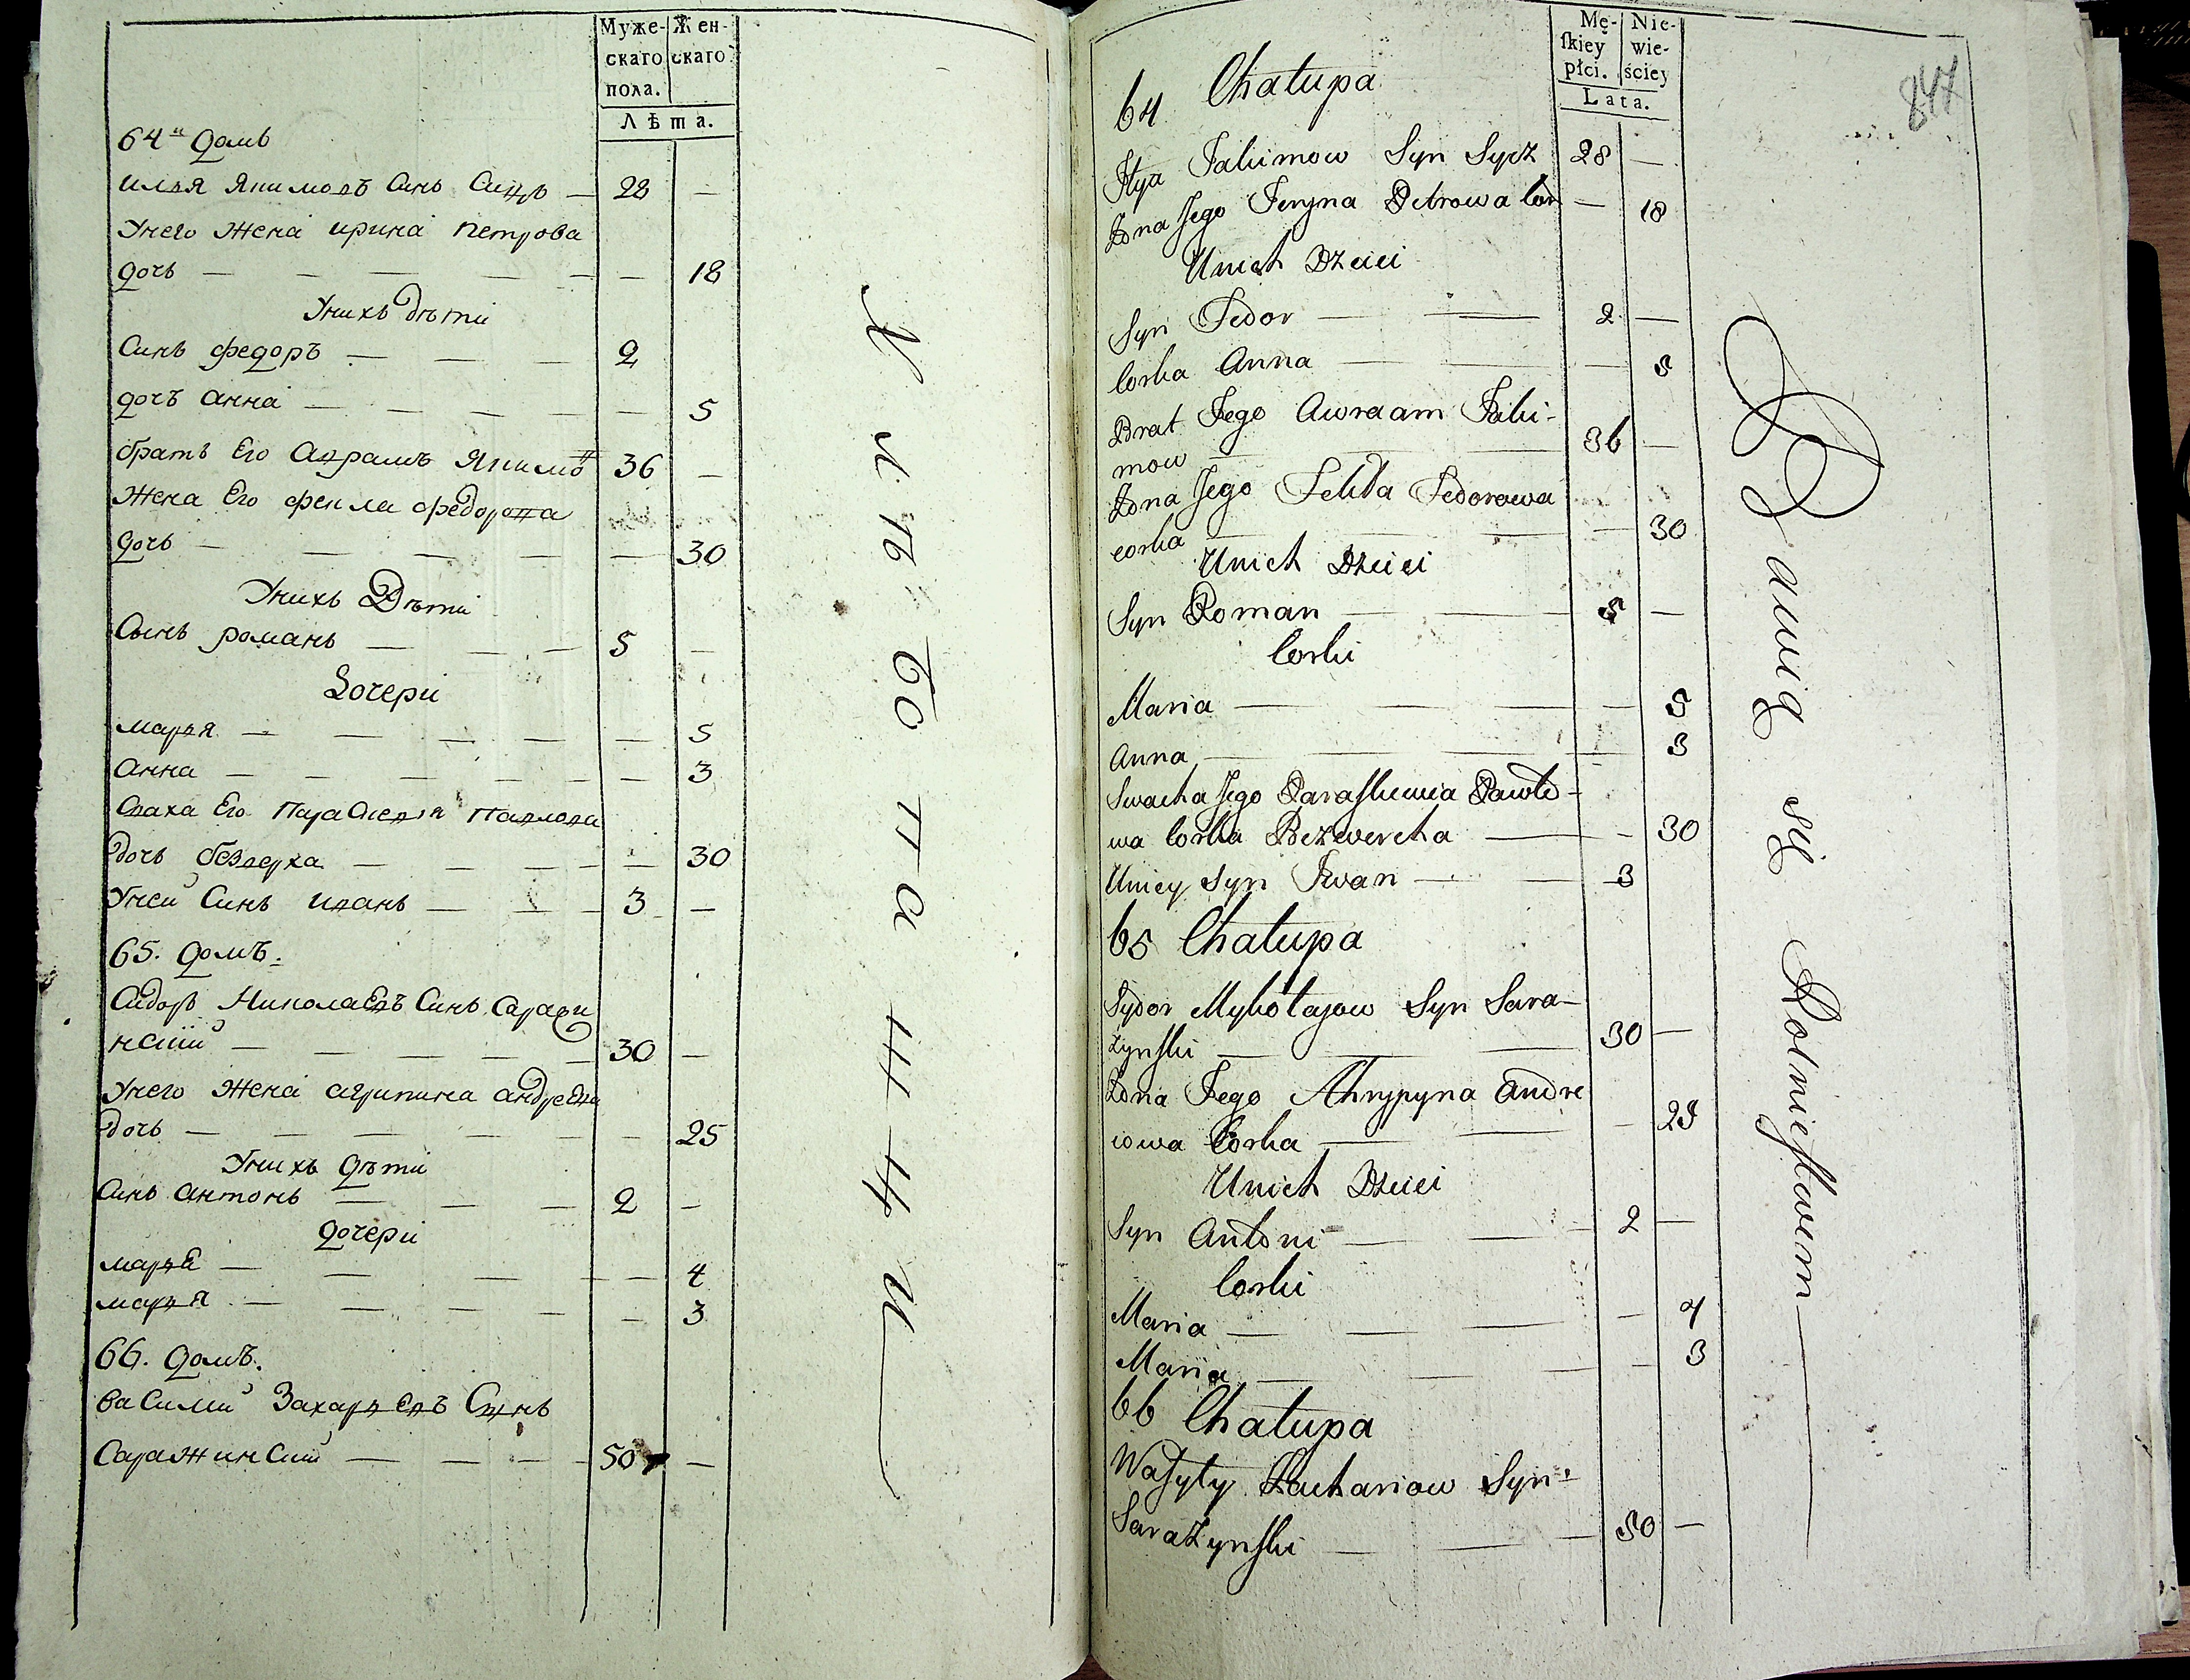 Муже-
скаго
пола.
Жен-
скаго
Лѣта.
64й домъ
илья Якимовъ Синъ Сичъ — 28 —
Унего Жена ирина петрова
дочь — — — — — — 18
Унихъ дѣти
Синъ федоръ — — — 2
дочъ анна — — — — — — 5
братъ Его Авраамъ Якимо 36 —
Жена Его фекла федорова
дочь — — — — — — 30
Унихъ Дѣти
Сынъ романъ — — — 5 —
Дочери
марья — — — — — — 5
анна — — — — — — — 3
Сваха Его Параскевія Павлова
дочь безверха — — — — — 30
Уней Синъ иванъ — — — 3 —
65. домъ.
Сидоръ Николаевъ Синъ Саражи
нский — — — — — 30 —
Унего Жена агрипина андреева
дочь — — — — — — 25
Унихъ Дѣти
Синъ антонъ — — — 2 —
дочери
марья — — — — — 4
марья — — — — — 3
66. домъ.
василий Захарьевъ Синъ
Саражинский — — — — 50 —
Хлѣбопашни
Mę-
ſkiey
płci.
Nie-
wie-
ściey
Lata.
847
64 Chałupa
Ilya Jakimow Syn Sycz 28 —
Żona Jego Jeryna Petrowa Cor — 18
Unich Dzieci
Syn Fedor — — 2 —
Corka Anna — — — 5
Brat Jego Awraam Jaki-
mow — — 36 —
Żona Jego Fekla Fedorowa
corka — — — — 30
Unich Dzieci
Syn Roman — — 5 —
Corki
Maria — — — — 5
Anna — — — — 3
Swacha Jego Paraſkiewia Pawło-
wa Corka Bezwercha — — 30
Uniey Syn Iwan — — 3
65 Chałupa
Sydor Mykołajow Syn Sara-
żynſki — — — 30 —
Żona Jego Ahrypyna Andre
iowa Corka — — — 25
Unich Dzieci
Syn Antoni — — — 2 —
Corki
Maria — — — — 4
Maria — — — — 3
66 Chałupa
Waſyly Zachariow Syn
Sarażynſki — — — 50 —
Bawią się Rolnictwem —